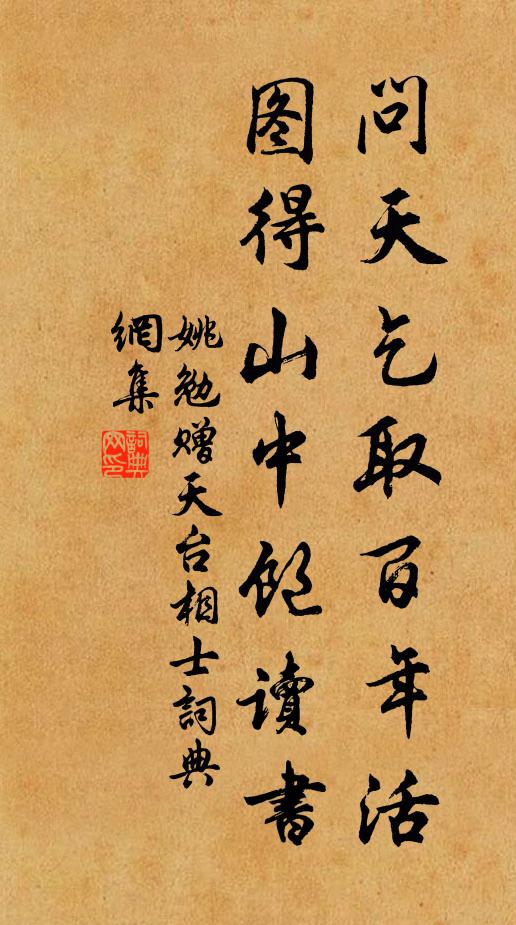 问天乞取百年活
图得山中饱读書
姚勉赠天台相士詞典
網集
詞典
网印